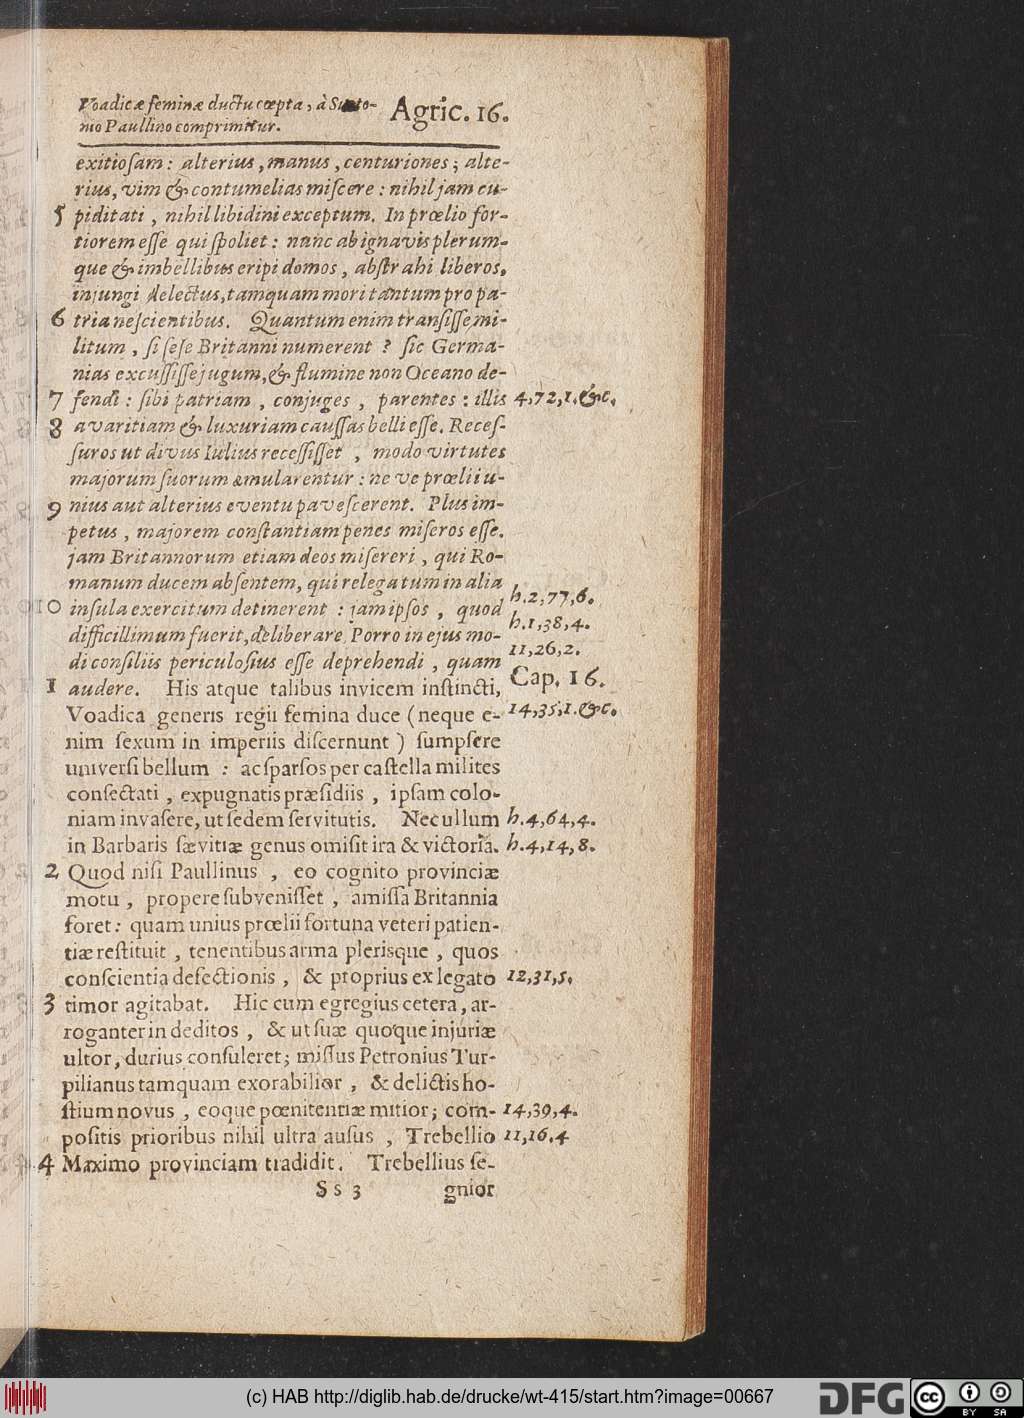 Voadicæ feminæ ductu cœpta, à Sueto-
nio Paullino comprimitur.
Agric. 16.
exitioſam: alterius, manus, centuriones; alte-
rius, vim & contumelias miſcere: nihil jam cu-
5 piditati, nihil libidini exceptum. In prœlio for-
tiorem eſſe qui ſpoliet: nunc ab ignavis plerum-
que & imbellibus eripi domos, abſtrahi liberos,
injungi delectus, tamquam mori tantum pro pa-
6 tria neſcientibus. Quantum enim tranſiſſe mi-
litum, ſi ſeſe Britanni numerent? ſic Germa-
nias excuſſiſſe jugum, & flumine non Oceano de-
7 fendi: ſibi patriam, conjuges, parentes: illis 4,72,1.&c.
8 avaritiam & luxuriam cauſſas belli eſſe. Receſ-
ſuros ut divus Iulius receſſiſſet, modo virtutes
majorum ſuorum æmularentur: ne ve prœlii u-
9 nius aut alterius eventu paveſcerent. Plus im-
petus, majorem conſtantiam penes miſeros eſſe.
jam Britannorum etiam deos miſereri, qui Ro-
manum ducem abſentem, qui relegatum in alia
10 inſula exercitum detinerent: jam ipſos, quod h.2,77,6.
difficillimum fuerit, deliberare. Porro in ejus mo- h.1,38,4.
di conſiliis periculoſius eſſe deprehendi, quam 11,26,2.
1 audere. His atque talibus invicem inſtincti, Cap. 16.
Voadica generis regii femina duce (neque e- 14,35,1.&c.
nim ſexum in imperiis diſcernunt) ſumpſere
univerſi bellum: ac ſparſos per caſtella milites
conſectati, expugnatis præſidiis, ipſam colo-
niam invaſere, ut ſedem ſervitutis. Nec ullum h.4,64,4.
in Barbaris ſævitiæ genus omiſit ira & victoria. h.4,14,8.
2 Quod niſi Paullinus, eo cognito provinciæ
motu, propere ſubveniſſet, amiſſa Britannia
foret: quam unius prœlii fortuna veteri patien-
tiæ reſtituit, tenentibus arma plerisque, quos
conſcientia defectionis, & proprius ex legato 12,31,5.
3 timor agitabat. Hic cum egregius cetera, ar-
roganter in deditos, & ut ſuæ quoque injuriæ
ultor, durius conſuleret; miſſus Petronius Tur-
pilianus tamquam exorabilior, & delictis ho-
ſtium novus, eoque pœnitentiæ mitior; com- 14,39,4.
poſitis prioribus nihil ultra auſus, Trebellio 11,16.4
4 Maximo provinciam tradidit. Trebellius ſe-
Ss 3 gnior
(c) HAB http://diglib.hab.de/drucke/wt-415/start.htm?image=00667
DFG
cc BY SA